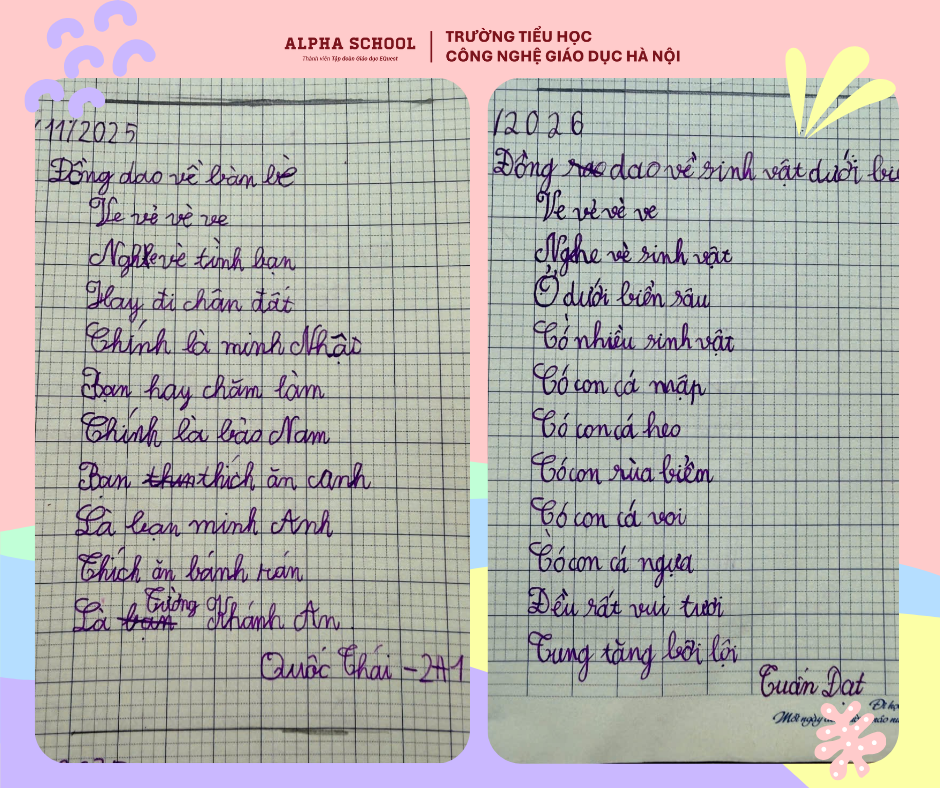 ALPHA SCHOOL
Thành viên Tập đoàn Giáo dục EQuest
TRƯỜNG TIỂU HỌC
CÔNG NGHỆ GIÁO DỤC HÀ NỘI
/11/2025
Đồng dao về bàn bè
Ve vẻ vè ve
Nghe vè tình bạn
Hay đi chân đất
Chính là minh Nhật
Bạn hay chăm làm
Chính là bảo Nam
Bạn thích ăn canh
Là bạn minh Anh
Thích ăn bánh rán
Là Tường Khánh An
Quốc Thái - 2A1
/2026
Đồng dao về sinh vật dưới
Ve vẻ vè ve
Nghe vè sinh vật
Ở dưới biển sâu
Có nhiều sinh vật
Có con cá mập
Có con cá heo
Có con rùa biển
Có con cá voi
Có con cá ngựa
Đều rất vui tươi
Tung tăng bơi lội
Tuấn Đạt
Đi
Mỗi ngày